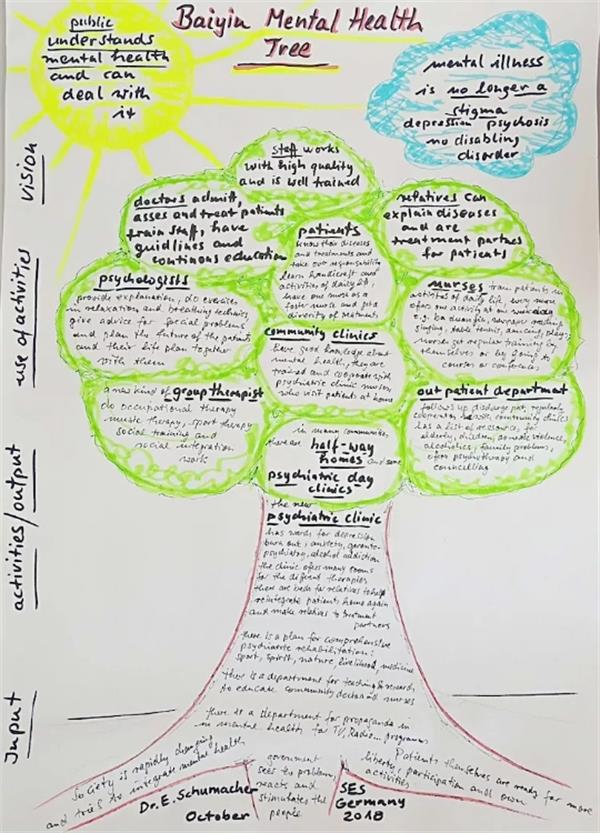 Baiyin Mental Health
Tree
public
understands
mental health
and can
deal with
it
mental illness
is no longer a
stigma
depression psychosis
no disabling
disorder
vision
use of activities
activities/output
Input
staff works
with high quality
and is well trained
doctors admitt,
asses and treat patients
train staff, have
guidlines and
continous education
patients
know their diseases
and treatments and
take our responsibility
learn handicraft and
activities of daily life,
have one nurse as a
foster nurse and get a
diversity of treatments
relatives can
explain diseases
and are
treatment partner
for patients
psychologists
provide explanation, do exercises
in relaxation and breathing technics,
give advice for social problems
and plan the future of the patients
and their life plan together
with them
community clinics
have good knowledge about
mental health, they are
trained and cooperate with
psychiatric clinic nurses
who visit patients at home
nurses train patients in
activities of daily life, every nurse
offers one activity at one week day
e.g. badmington, newspaper reading
singing, table tennis, dancing, plays,
nurses get regular training by
themselves or by going to
courses or conferences
a new kind of group therapist
do occupational therapy
music therapy, sport therapy
social training and
social integration
work
out patient department
follows up discharge pat, regularly
cooperates with community clinics
has a list of ressource, for
elderly, children, domestic violence,
alcoholics, family problems,
offers psychotherapy and
councelling
in many communities
there are half-way
homes and some
psychiatric day
clinics
the new
psychiatric clinic
has wards for depression
burn out, anxiety, geronto-
psychiatry, alcohol addiction
the clinic offers many rooms
for the different therapies
there are beds for relatives to help
reintegrate patients home again
and make relatives to treatment
partners
there is a plan for comprehensive
psychiatric rehabilitation:
sport, spirit, nature, livelihood, medicine
there is a department for teaching & research
to educate community doctors and nurses
there is a department for propaganda in
in mental health for TV, Radio... programms
society is rapidly changing
and tries to integrate mental health
government
sees the problem,
reacts and
stimulates the
people
Patients themselves are ready for more
liberty, participation and own
activities
Dr. E. Schumacher
October
SES
Germany
2018